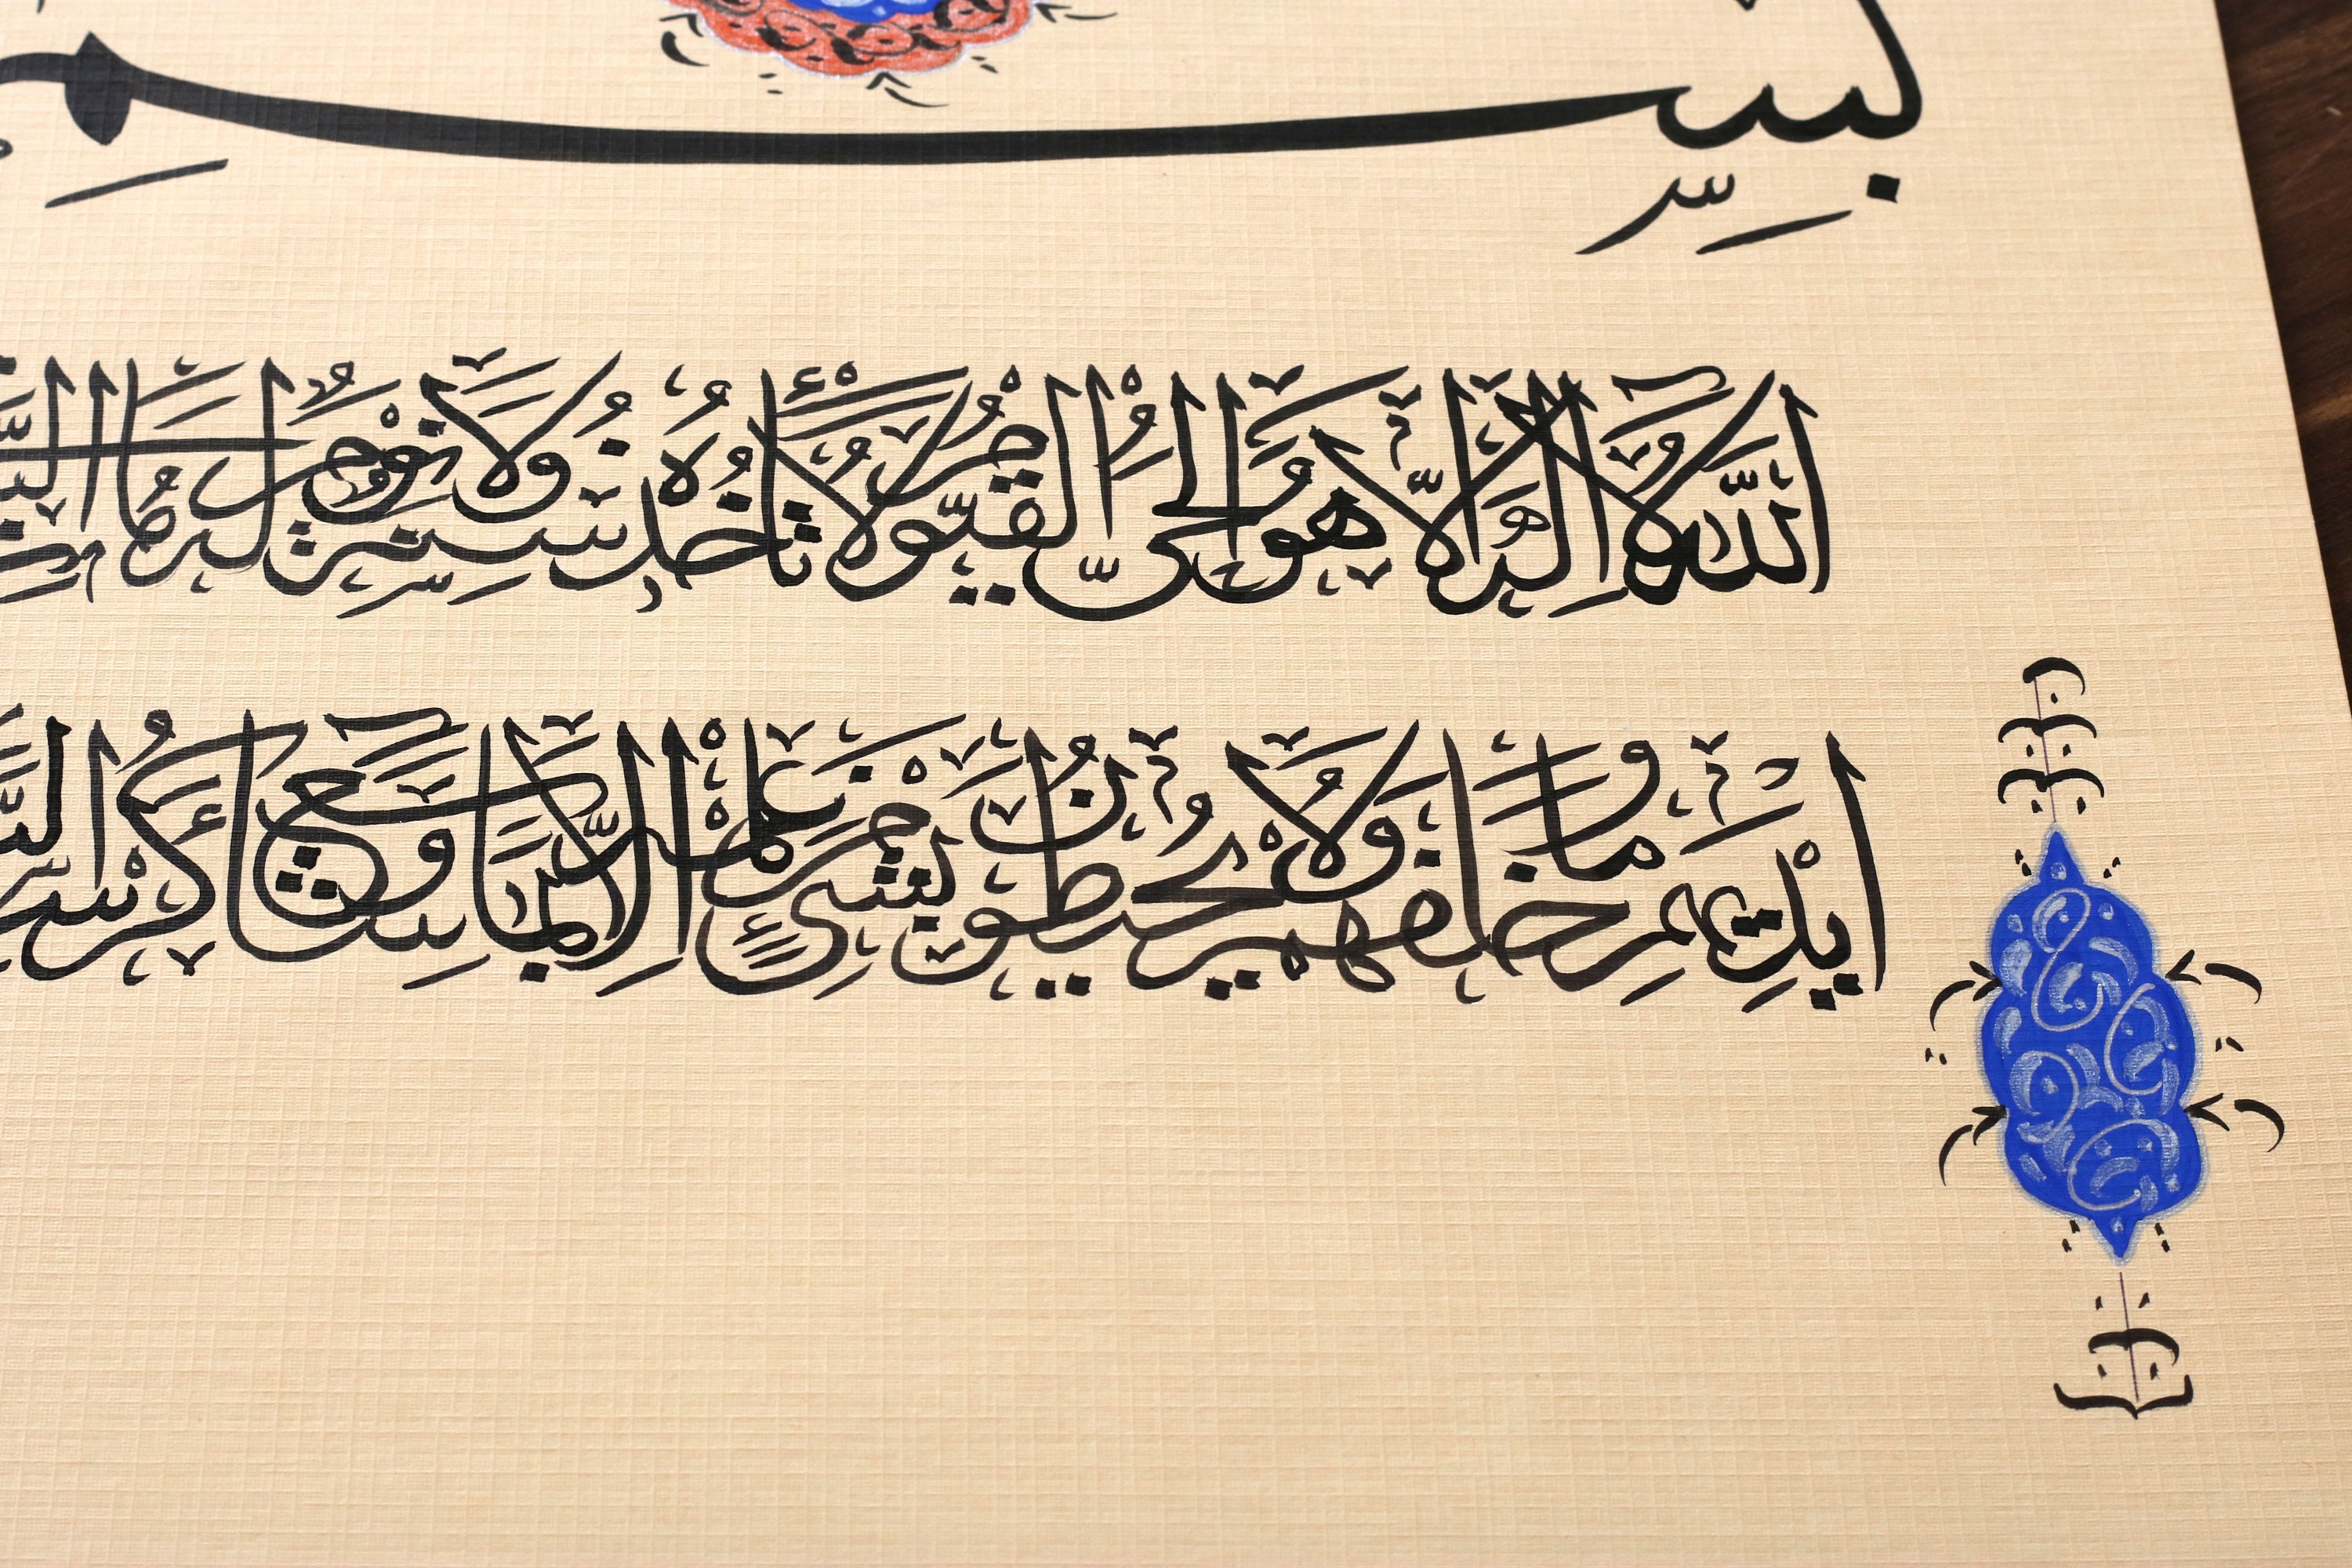 بِسْمِ
اَللّٰهُ لَا اِلٰهَ اِلَّا هُوَ الْحَىُّ الْقَيُّومُ لَا تَأْخُذُهُ سِنَةٌ وَلَا نَوْمٌ لَهُ مَا
اَيْدِيهِمْ وَمَا خَلْفَهُمْ وَلَا يُحِيطُونَ بِشَىْءٍ مِنْ عِلْمِهِ اِلَّا بِمَا شَاءَ وَسِعَ